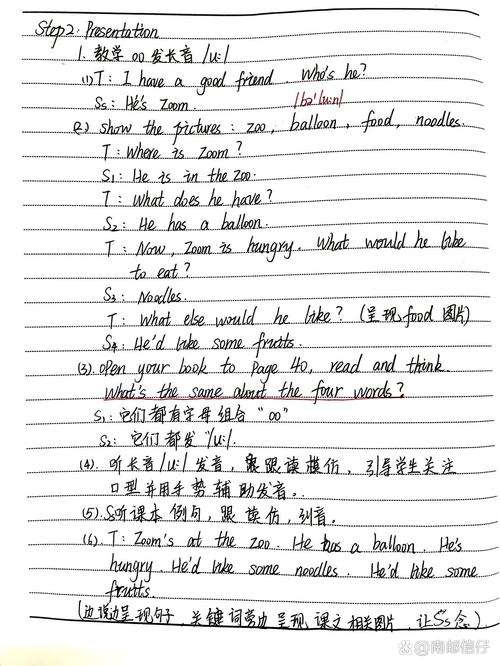 Step2: Presentation
1. 教学 oo 发长音 /u:/
(1) T: I have a good friend. Who's he?
Ss: He's Zoom. /bə'lu:n/
(2) Show the pictures: zoo, balloon, food, noodles.
T: Where is Zoom?
S1: He is in the zoo.
T: What does he have?
S2: He has a balloon.
T: Now, Zoom is hungry. What would he like
to eat?
S3: Noodles.
T: What else would he like? (呈现 food 图片)
S4: He'd like some fruits.
(3). Open your book to Page 40, read and think.
What's the same about the four words?
S1: 它们都有字母组合 "oo"
S2: 它们都发 /u:/.
(4). 听长音 /u:/ 发音, 跟读模仿, 引导学生关注
口型并用手势辅助发音。
(5). S听课本例句, 跟读仿, 列音。
(6). T: Zoom's at the zoo. He has a balloon. He's
hungry. He'd like some noodles. He'd like some
fruits.
(边说边呈现句子, 关键词旁边呈现课文相关图片, 让Ss念)
@南邮信仔